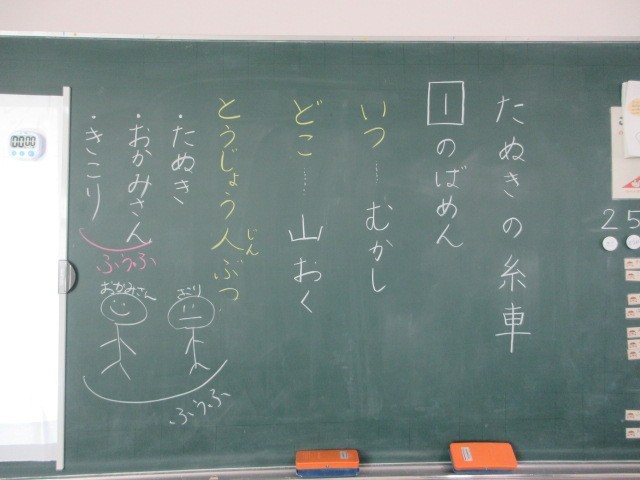 たぬきの糸車
1のばめん
いつ……むかし
どこ……山おく
とうじょう人ぶつ
じん
・たぬき
・おかみさん
・きこり
ふうふ
おかみさん
ふうふ
00:00
25